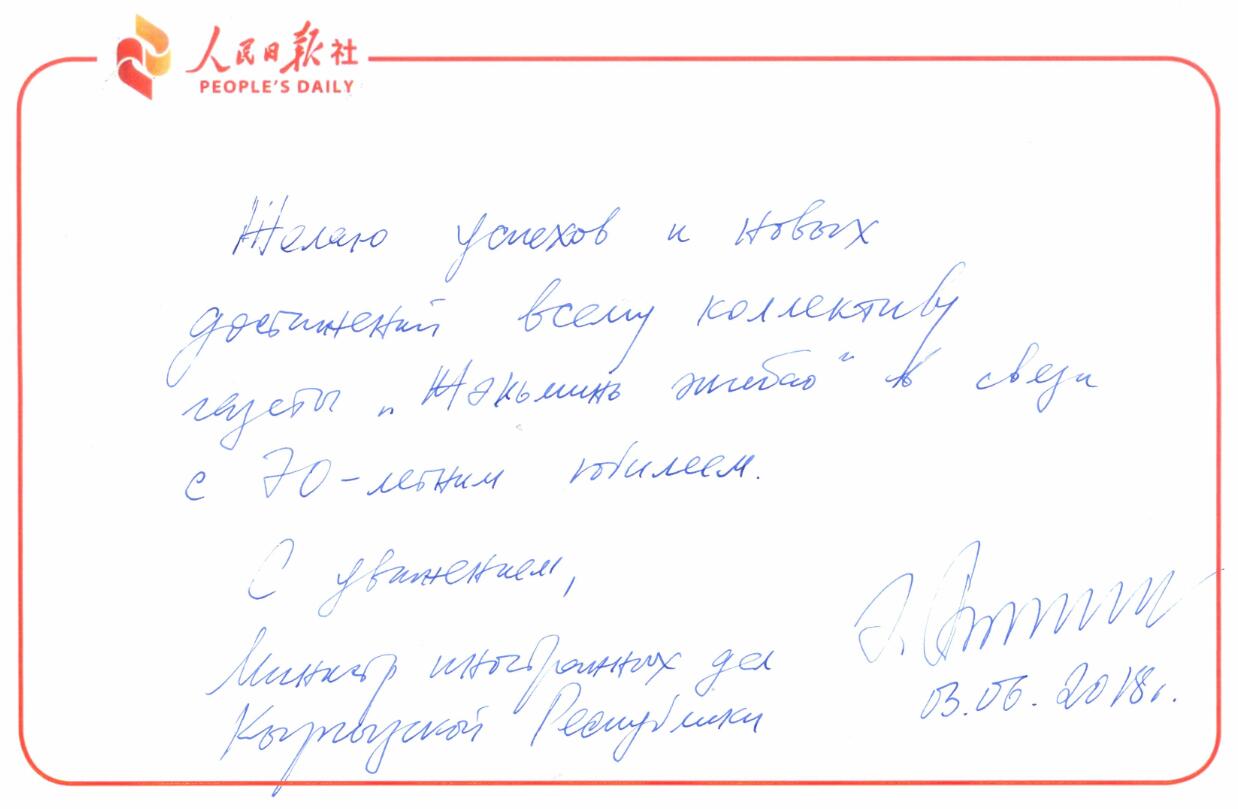 人民日报社
PEOPLE'S DAILY
Желаю успехов и новых
достижений всему коллективу
газеты „Жэньминь жибао“ в связи
с 70-летним юбилеем.
С уважением,
Министр иностранных дел
Кыргызской Республики
03.06.2018г.